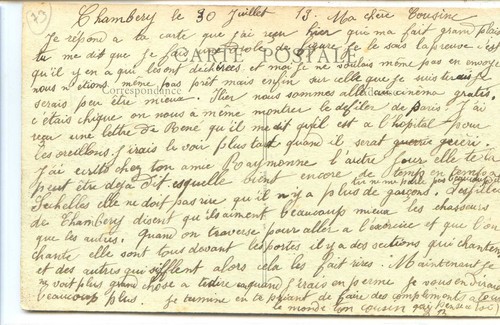 Chambery le 30 Juillet 13. Ma chère Cousine
Je répond a ta carte que j'ai reçu hier qui ma fait grand plaisir
tu me dit que je fais une drole de figure je le sais la preuve c'est
qu'il y en a qui livont déchirées et moi je ne voulais même pas en envoyer
nous n'étions même pas prêt mais enfin sur celle que je suis
serais peu être mieux. Hier nous sommes allé au cinéma gratis.
CARTE POSTALE
Correspondance
c'étais chique on nous a même montrer le défiler de Paris. J'ai
reçu une lettre de René qu'il me dit qu'il est a l'hôpital pour
les oreillons. J'irais le voir plus tard quand il serat guerri
J'ai ecrit chez ton amie Raymonne l'autre jour elle te l'a
peut être déjà dit esquelle vient encore de temp en temp
elle ne doit pas rire qu'il n'y a plus de garçons. Les filles
de Chambery disent qu'ils aiment beaucoup mieux les chasseurs
que les autres. Quand on traverse pour aller a l'exercice et que l'on
chante elle sont tous devant les portes il y a des sections qui chantent
et des autres qui sifflent alors cela les fait rires. Maintenant je
ne voit plus grand chose a te dire quand j'irais en perme je vous en dirais
beaucoup plus. Je termine en te priant de faire des compliments a tout
le monde ton cousin qui pense a toi